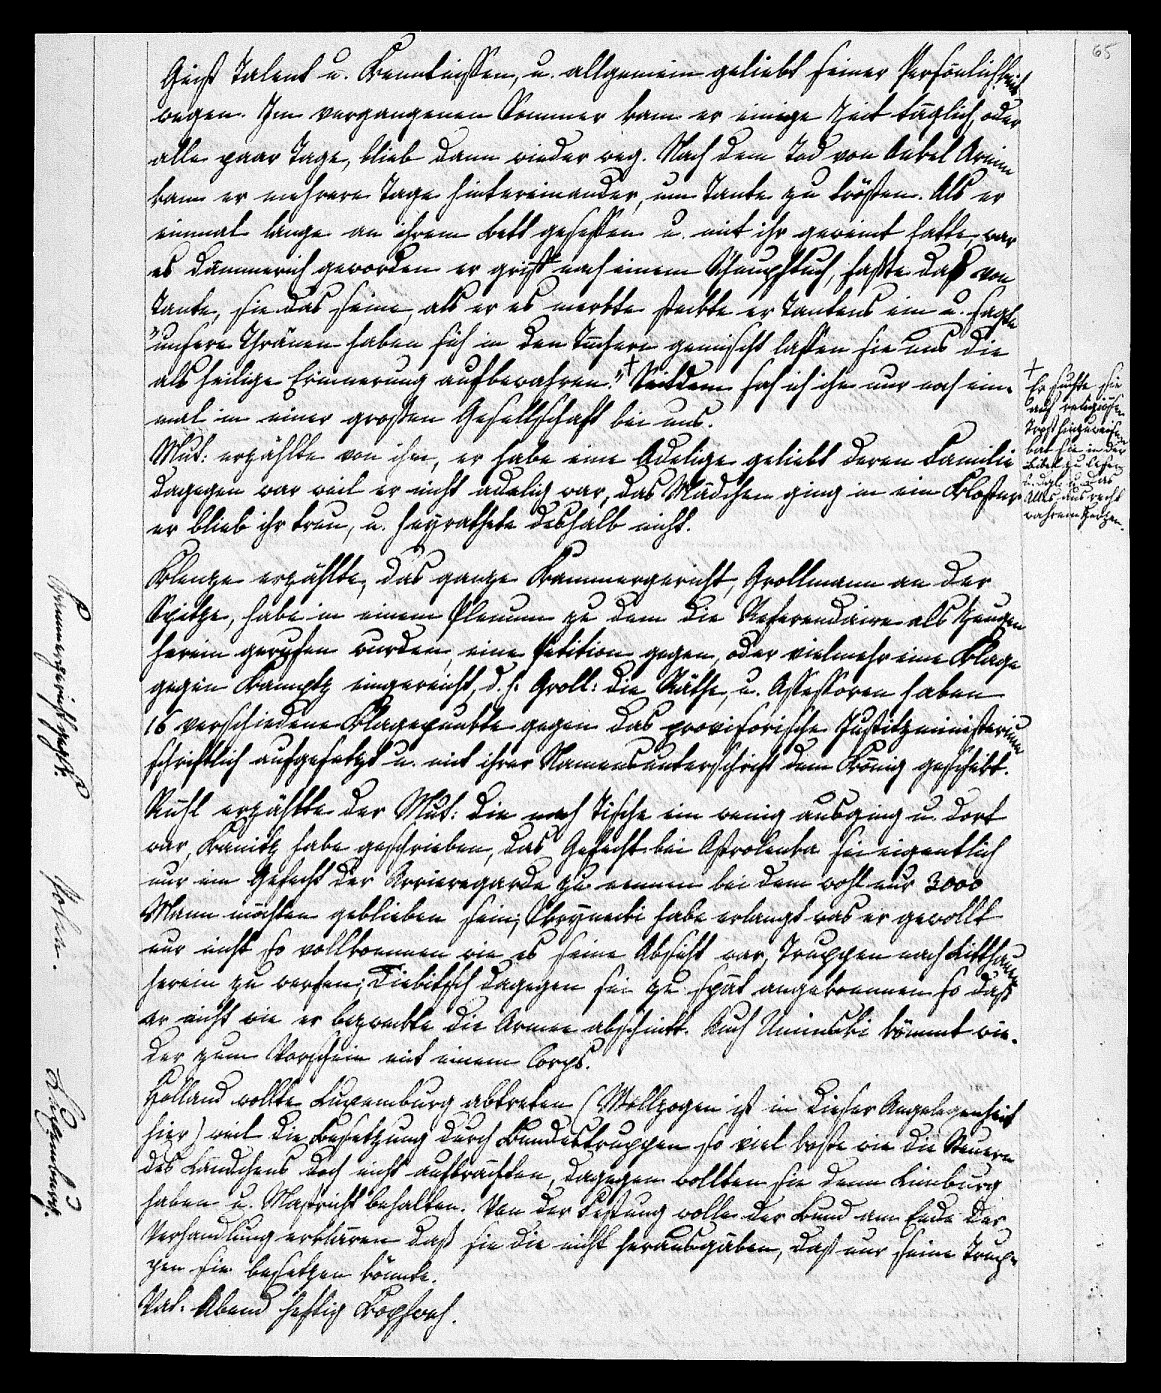 65
Geist Talent u. Kenntnissen, u. allgemein geliebt seiner Persönlichkeit
wegen. Im vergangenen Sommer kam er einige Zeit täglich oder
alle paar Tage, blieb dann wieder weg. Nach dem Tod von Onkel Arnim
kam er mehrere Tage hintereinander, um Tante zu trösten. Als er
einmal lange an ihrem Bett gesessen u. mit ihr geweint hatte, war
es dämmerich geworden er griff nach einem Schnupftuch, faßte das von
Tante, sie das seine, als er es merkte steckte er Tantens ein u. sagte
"unsere Thränen haben sich in den Tüchern gemischt lassen sie uns die
als heilige Erinnerung aufbewahren."+ Seitdem sah ich ihn nur noch ein-
mal in einer großen Gesellschaft bei uns.
+
Er suchte sie
auf religiösen
Trost hinzuweisen
bat sie in der
Bibel zu lesen
u. dgl. u. das
Alles aus recht
wahrem Herzen.
Mut: erzählte von ihm, er habe eine Adelige geliebt deren Familie
dagegen war weil er nicht adelig war, das Mädchen ging in ein Kloster
er blieb ihr treu, u. heyrathete deshalb nicht.
Kammergerichtsgesch.
Klenze erzählte, das ganze Kammergericht, Grollmann an der
Spitze, habe in einem Plenum zu dem die Referendaire als Zeugen
herein gerufen wurden, eine Petition gegen, oder vielmehr eine Klage
gegen Kamptz eingereicht, d. h. Groll: die Räthe, u. Assessoren haben
16 verschiedene Klagepunkte gegen das provisorische Justizministerium
schriftlich aufgesetzt u. mit ihrer Namensunterschrift dem König geschickt.
Polen.
Rühl erzählte der Mut: die nach Tische ein wenig ausging u. dort
war, Kanitz habe geschrieben, das Gefecht bei Ostrolenka sei eigentlich
nur ein Gefecht der Arrieregarde zu nennen bei dem wohl nur 3000
Mann möchten geblieben sein; Skrzynecki habe erlangt was er gewollt
nur nicht so vollkommen wie es seine Absicht war, Truppen nach Litthauen
herein zu werfen; Diebitsch dagegen sei zu spät angekommen so daß
er nicht wie er bezweckte die Armee abschnitt. Auch Uminski kömmt wie-
der zum Vorschein mit einem Corps.
Luxemburg.
Holland wollte Luxemburg abtreten (Wollzogen ist in dieser Angelegenheit
hier) weil die Besetzung durch Bundestruppen so viel koste wie die Steuern
des Ländchens doch nicht aufbrächten, dagegen wollten sie denn Limburg
haben u. Mastricht behalten. Von der Festung wolle der Bund am Ende der
Verhandlung erklären daß sie die nicht herausgäben, daß nur seine Trup-
pen sie besetzen könnte.
Vat. Abend heftig Kopfweh.